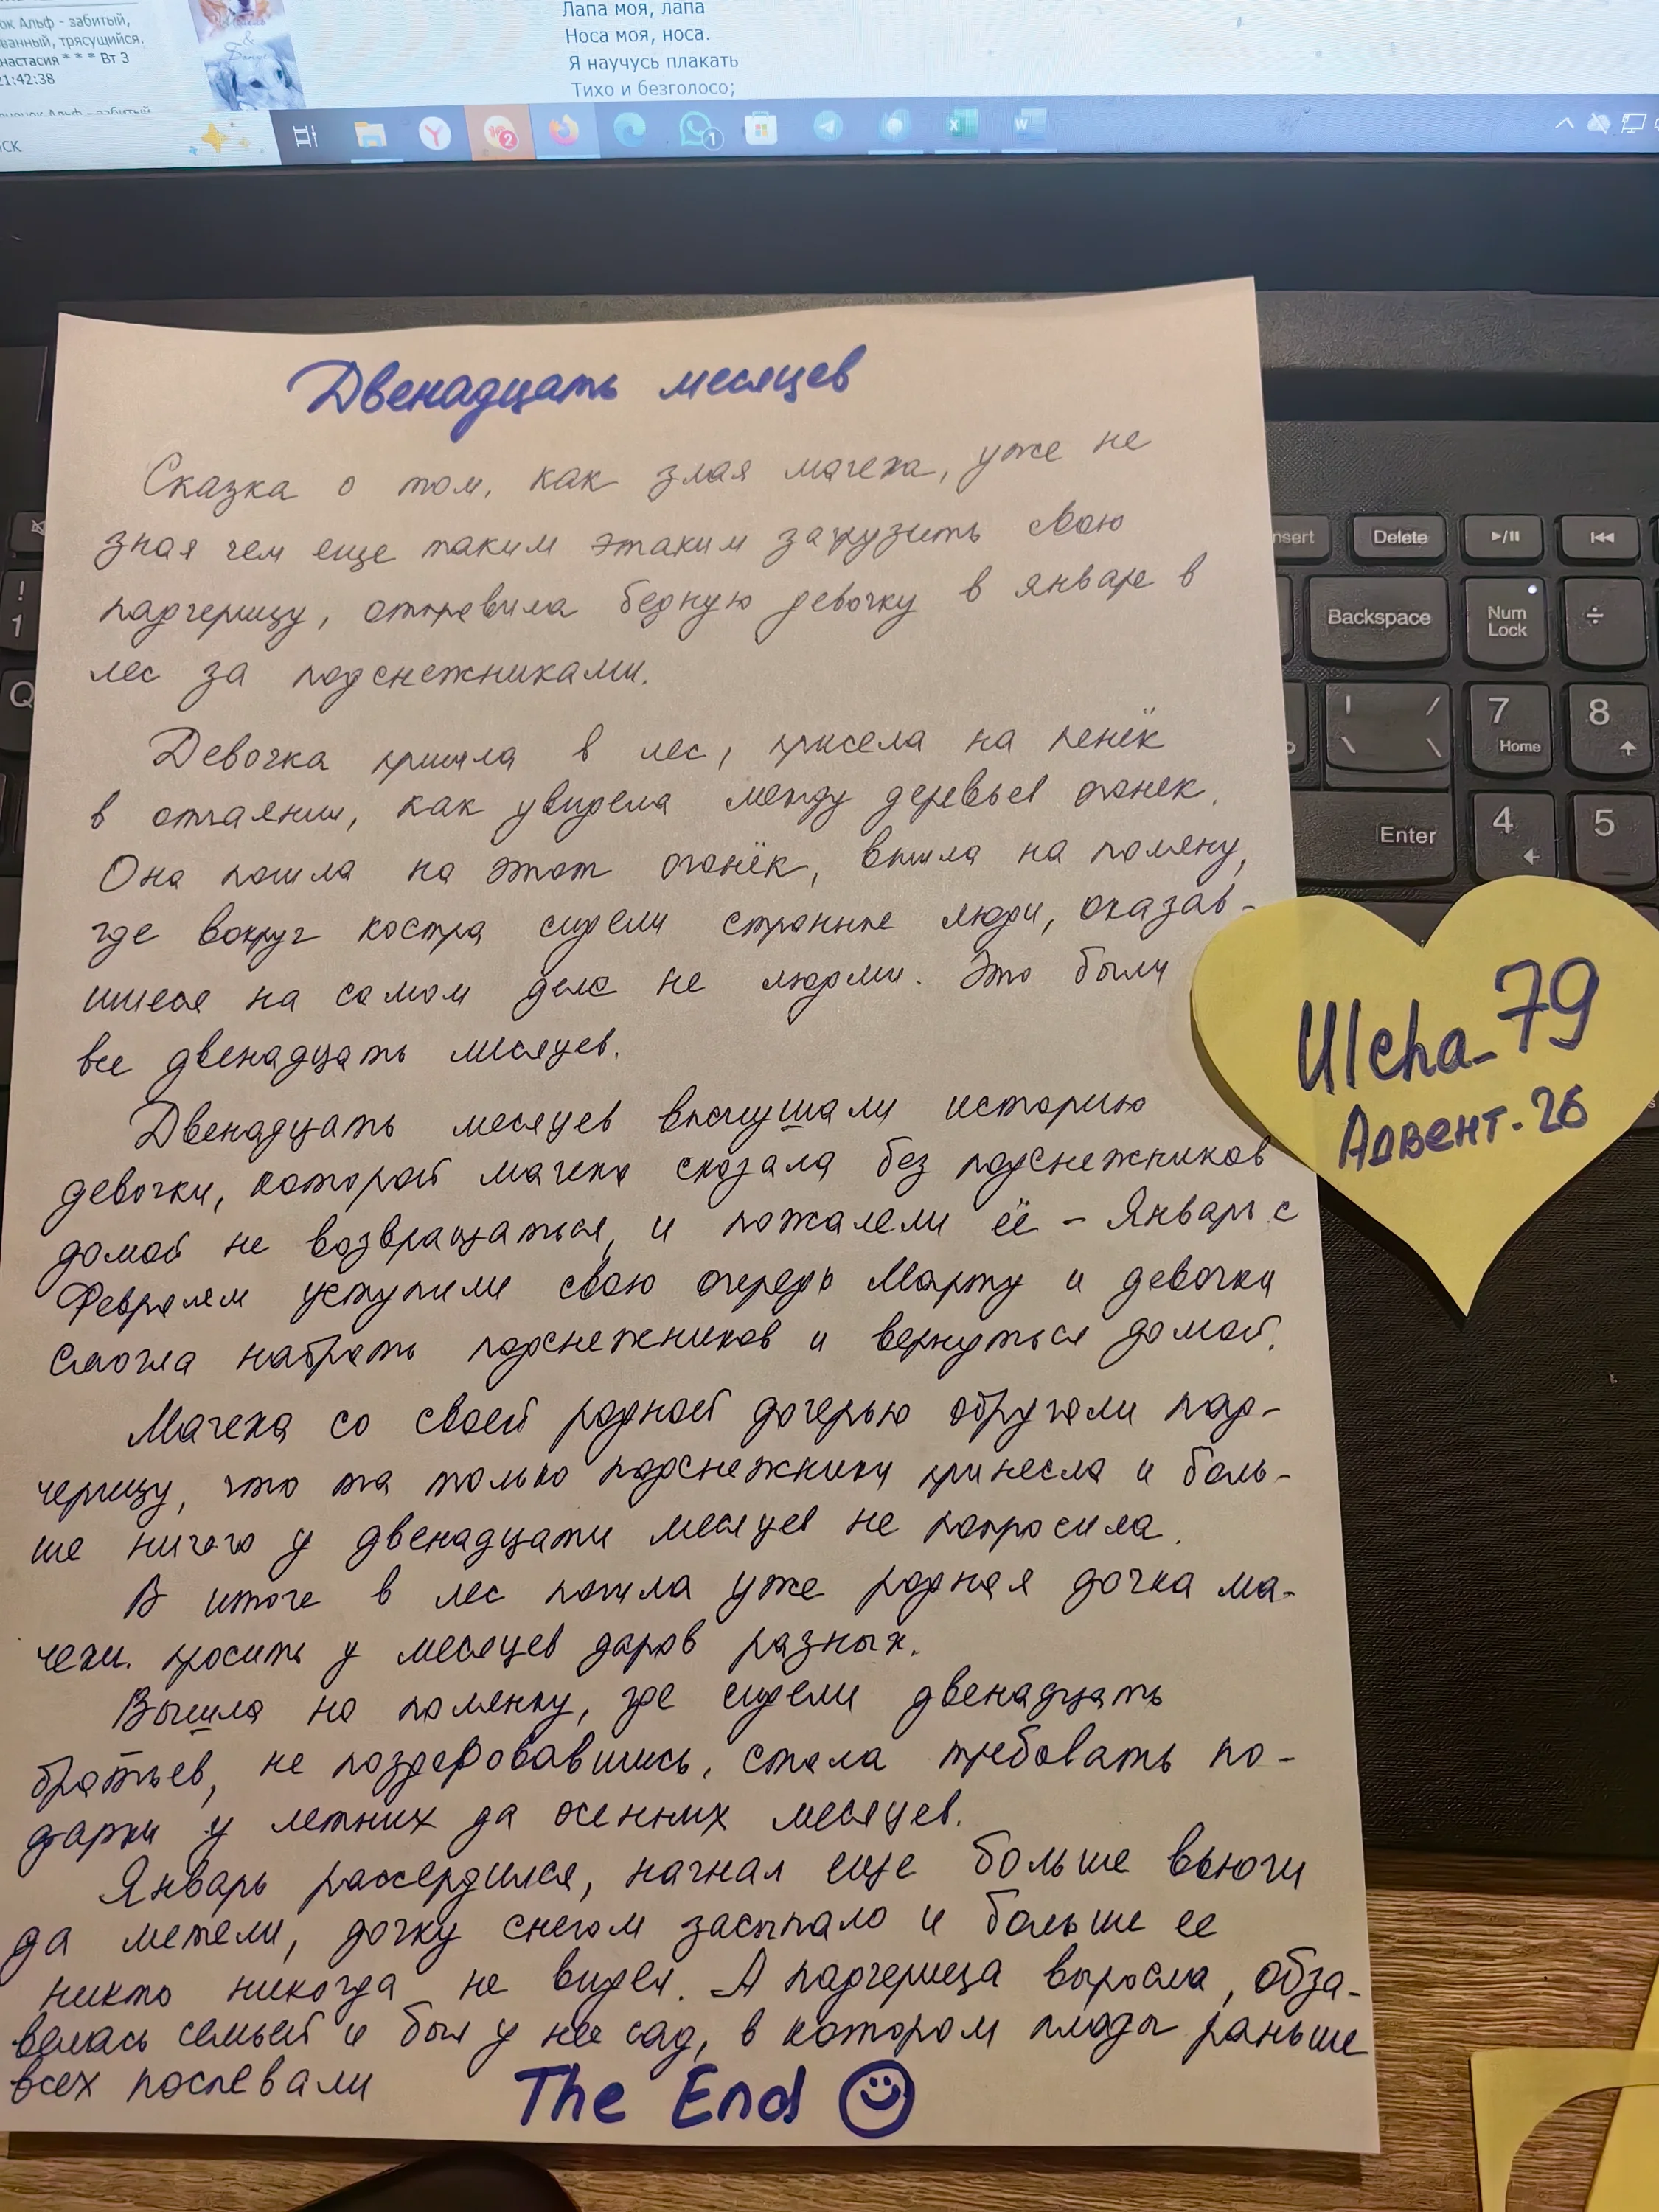 ок Альф - забитый,
ванный, трясущийся.
настасия * * * Вт 3
21:42:38
Лапа моя, лапа
Носа моя, носа.
Я научусь плакать
Тихо и безголосо;
ск
2
1
Двенадцать месяцев
Сказка о том, как злая мачеха, уже не
зная чем еще таким этаким загрузить свою
падчерицу, отправила бедную девочку в январе в
лес за подснежниками.
Девочка пришла в лес, присела на пенёк
в отчаянии, как увидела между деревьев огонек.
Она пошла на этот огонёк, вышла на поляну,
где вокруг костра сидели странные люди, оказав-
шиеся на самом деле не людьми. Это были
все двенадцать месяцев.
Двенадцать месяцев выслушали историю
девочки, которой мачеха сказала без подснежников
домой не возвращаться, и пожалели её - Январь с
Февралем уступили свою очередь Марту и девочка
смогла набрать подснежников и вернуться домой.
Мачеха со своей родной дочерью обругали пад-
черицу, что та только подснежники принесла и боль-
ше ничего у двенадцати месяцев не попросила.
В итоге в лес пошла уже родная дочка ма-
чехи. просить у месяцев даров разных.
Вышла на полянку, где сидели двенадцать
братьев, не поздоровавшись, стала требовать по-
дарки у летних да осенних месяцев.
Январь рассердился, начнал еще больше вьюги
да метели, дочку снегом засыпало и больше ее
никто никогда не видел. А падчерица выросла, обза-
велась семьей и был у нее сад, в котором плоды раньше
всех поспевали
The End
Ulcha_79
Адвент-26
nsert
Delete
Backspace
Num
Lock
÷
7
Home
8
Enter
4
5
!
1
Q